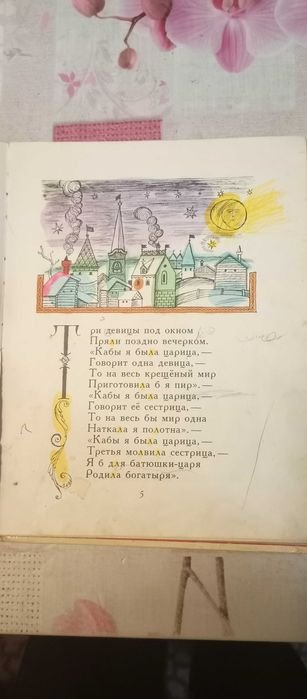 Три девицы под окном
Пряли поздно вечерком.
«Кабы я была царица, —
Говорит одна девица, —
То на весь крещёный мир
Приготовила б я пир». —
«Кабы я была царица, —
Говорит её сестрица, —
То на весь бы мир одна
Наткала я полотна». —
«Кабы я была царица, —
Третья молвила сестрица, —
Я б для батюшки-царя
Родила богатыря».
5